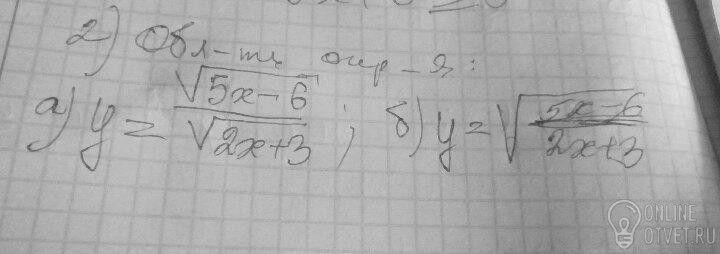 2) Обл-ть опр-я:
а) y = √(5x-6) / √(2x+3) ; б) y = √((5x-6) / (2x+3))
ONLINE
OTVET.RU